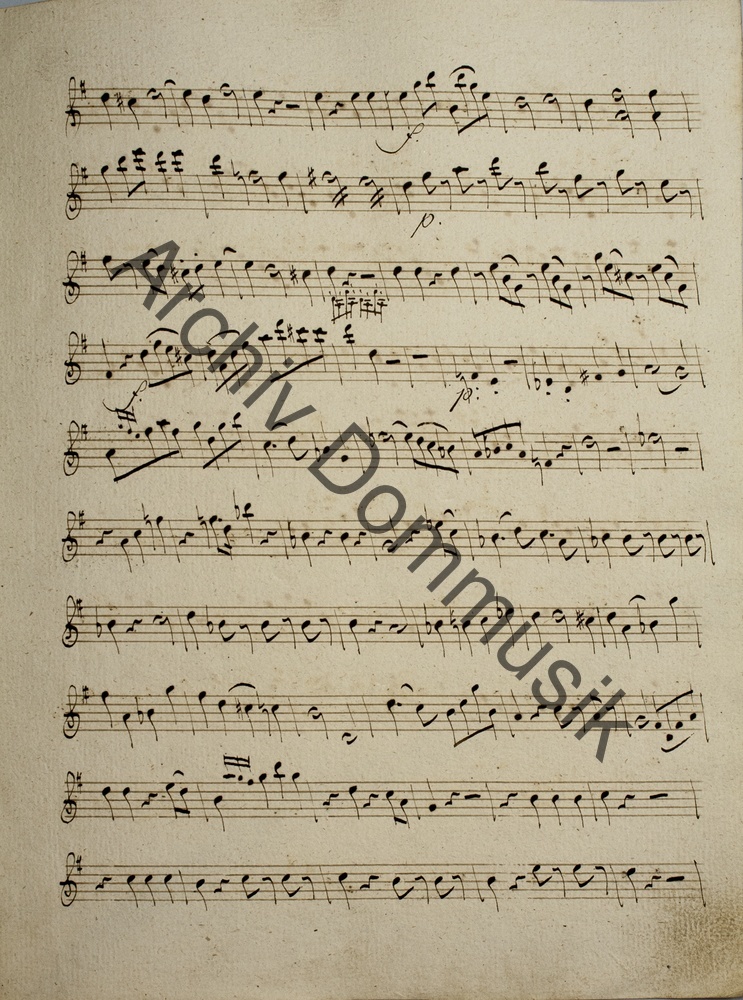 f.
p.
f.
p:
Archiv Dommusik